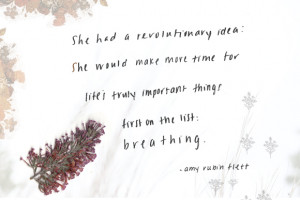 She had a revolutionary idea:
She would make more time for
life's truly important things
first on the list:
breathing.
- amy rubin flett